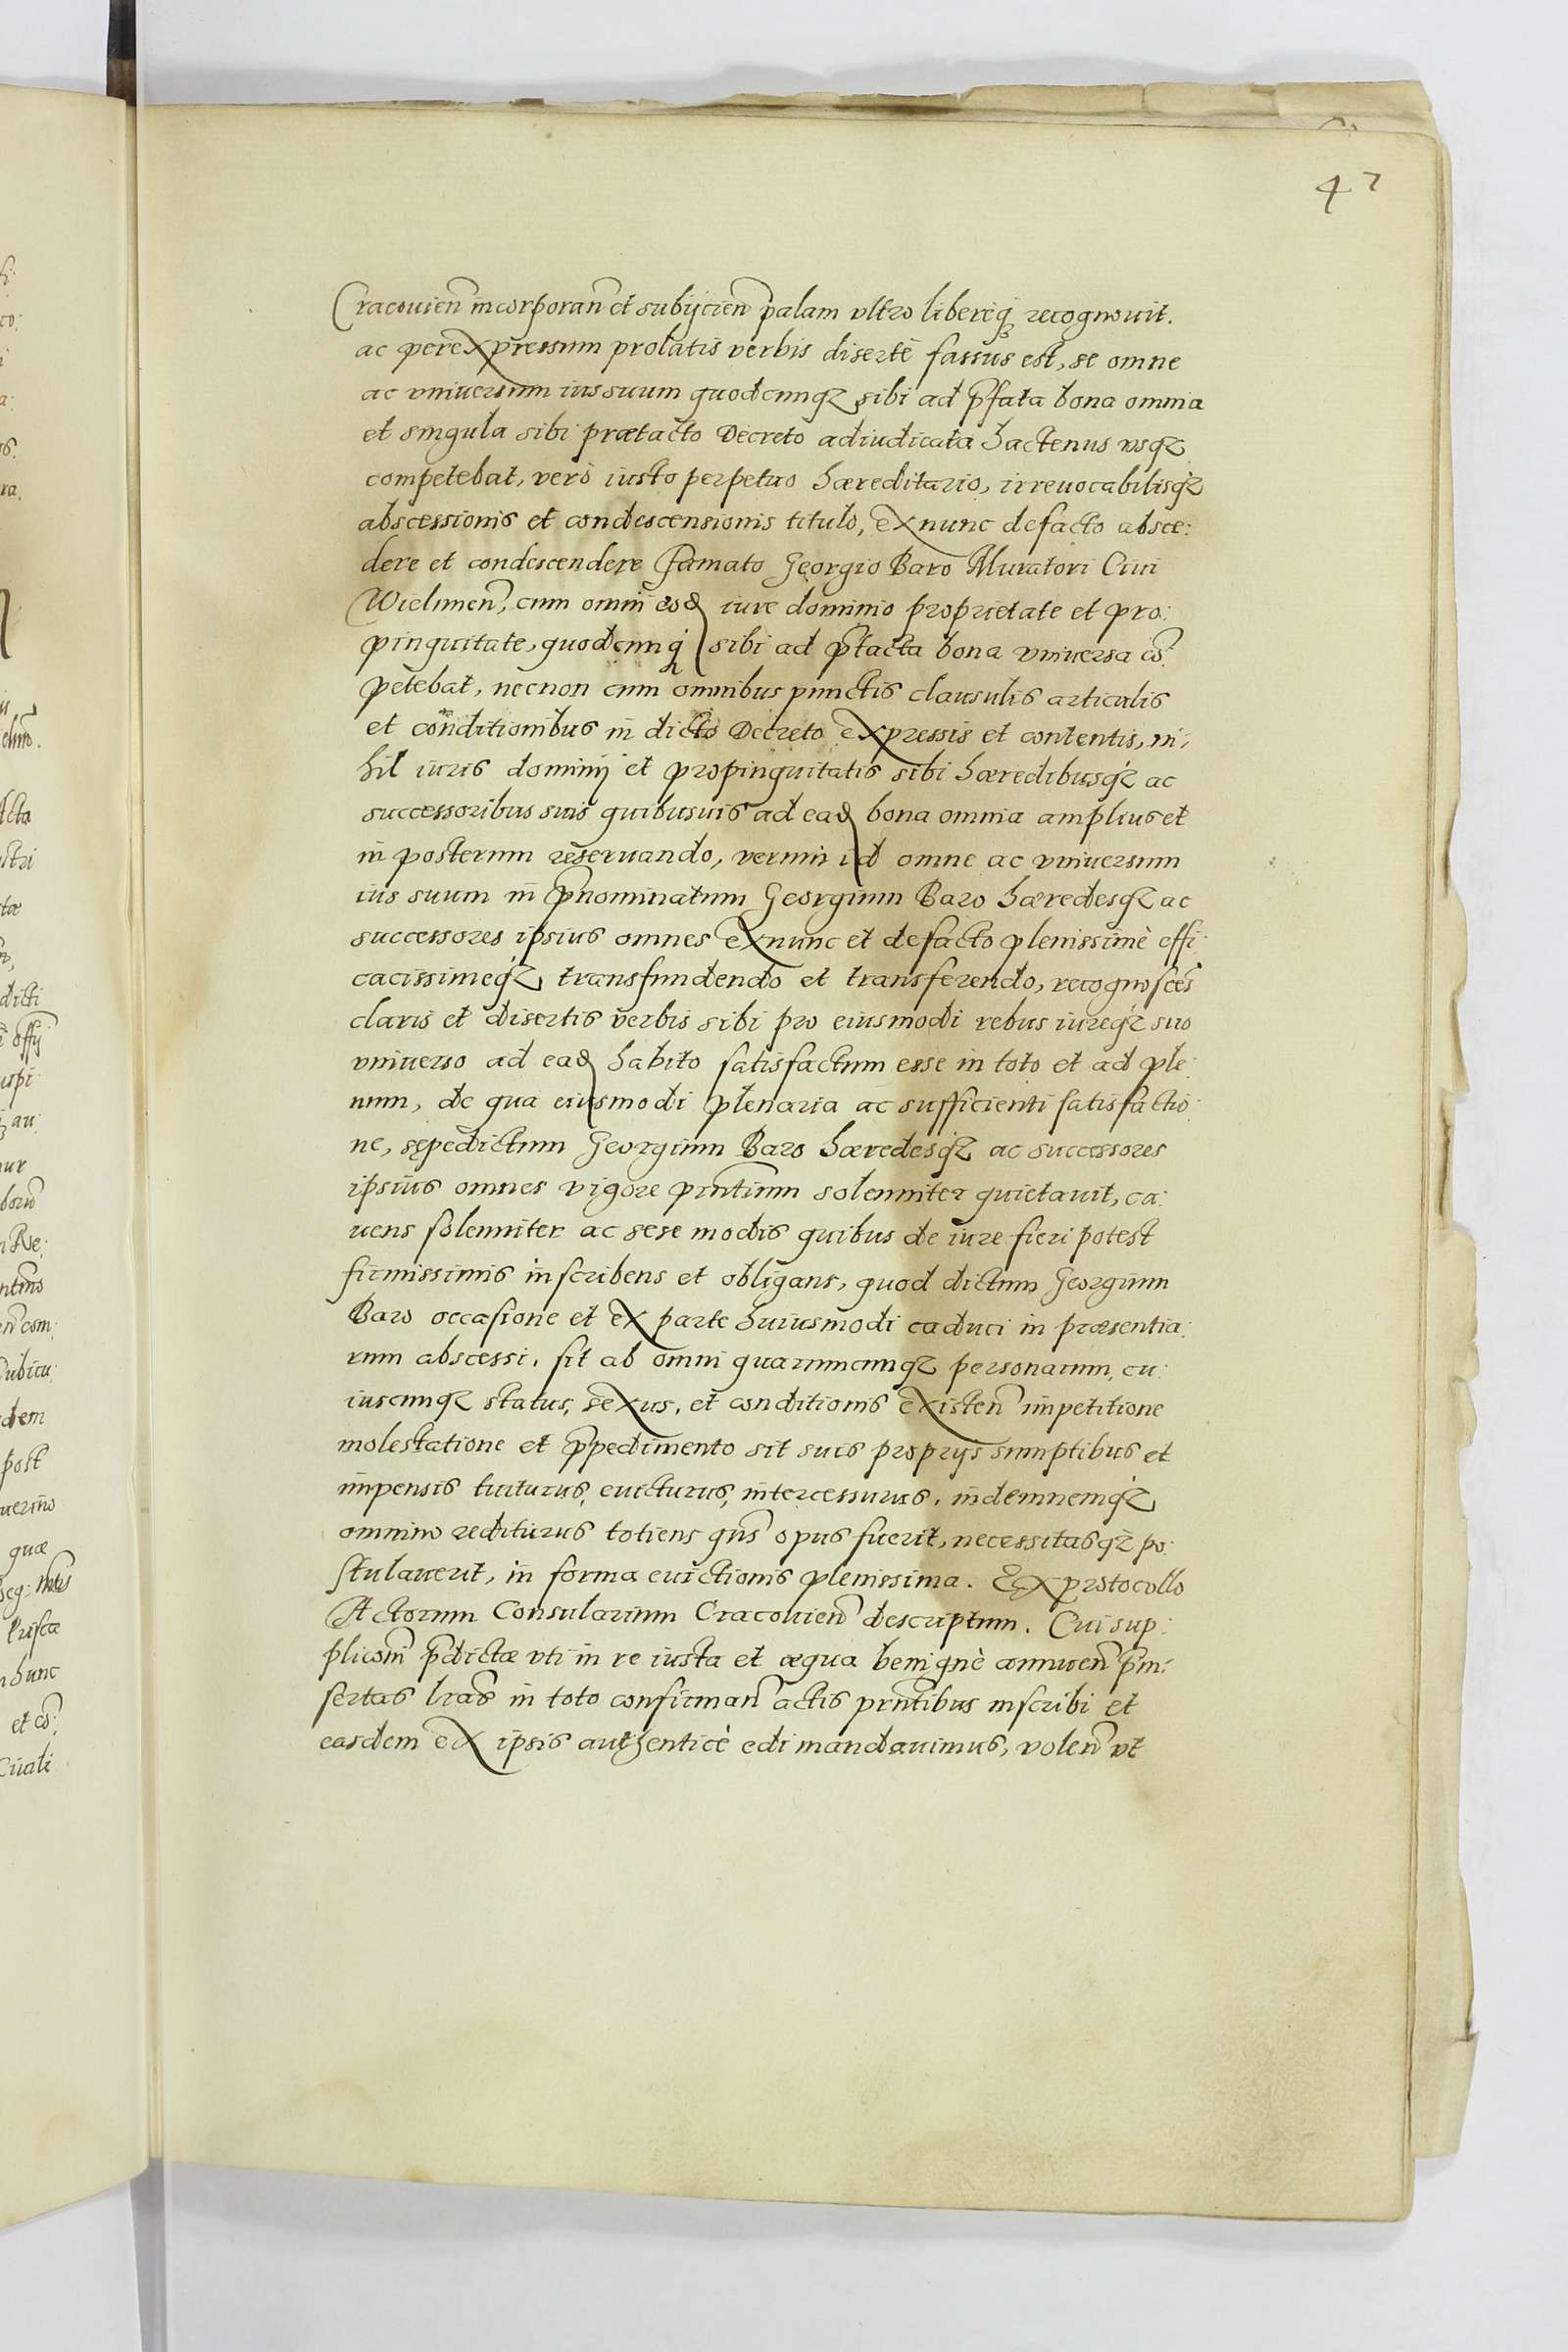 42
Cracovien̄ incorporan̄ et subijcien̄ palam ultro libereq́ꝫ recognovit.
ac per expressum prolatis verbis disertè fassus est, se omne
ac vniversum ius suum quodcunqꝫ sibi ad p̄fata bona omnia
et singula sibi prætacto Decreto adiudicata hactenus vsqꝫ
competebat, verò iusto perpetuo hæreditario, irreuocabilisq́ꝫ
abscessionis et condescensionis titulo, ex nunc de facto absce:
dere et condescendere Famato Georgio Baro Muratori Ciui
Wielunen̄, cum omni eod iure dominio proprietate et pro:
pinguitate, quodcunq́ sibi ad p̄tacta bona vniuersa cō:
petebat, necnon cum omnibus punctis clausulis articulis
et conditionibus in dicto Decreto expressis et contentis, ni,
hil iuris dominij et propinguitatis sibi hæredibusq́ꝫ ac
successoribus suis quibusuis ad ead bona omnia amplius et
in posterum reseruando, verum id omne ac vniuersum
ius suum in p̄nominatum Georgium Baro hæredesqꝫ ac
successores ipsius omnes ex nunc et de facto plenissimè effi:
cacissimeq́ꝫ transfundendo et transferendo, recognoscēs
claris et disertis verbis sibi pro eiusmodi rebus iureq́ꝫ suo
vniuerso ad ead habito satisfactum esse in toto et ad ple:
num, de qua eiusmodi plenaria ac sufficienti satisfactio:
ne, sępedictum Georgium Baro hæredesq́ꝫ ac successores
ipsius omnes vigore pr̄ntium solenniter quietauit, ca:
uens solenniter ac sese modis quibus de iure fieri potest
firmissimis inscribens et obligans, quod dictum Georgium
Baro occasione et ex parte huiusmodi caduci in præsentia:
rum abscessi, sit ab omni quarumcunqꝫ personarum, cu:
iuscunqꝫ status, sexus, et conditionis existen̄ impetitione
molestatione et p̄pedimento sit suis proprijs sumptibus et
impensis tuiturus, euicturus, intercessurus, indemnemq́ꝫ
omnino rediturus totiens qn̄s opus fuerit, necessitasq́ꝫ po:
stulauerit, in forma euictionis plenissima. Ex protocollo
Actorum Consularium Cracouien̄ descriptum. Cui sup:
pliconi p̄dictæ vti in re iusta et æqua benignè annuen̄ p̄in:
sertas lrās in toto confirman̄ actis pr̄ntibus inscribi et
easdem ex ipsis authenticè edi mandauimus, volen̄ vt